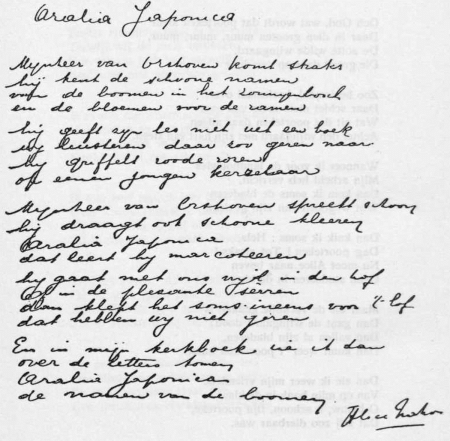 Aralia Japonica
Mynheer van Orshoven komt straks
hij kent de schoone namen
van de boomen in het zonnyebosch
en de bloemen voor de ramen
hij geeft zyn les niet uit een boek
wy luisteren daar zoo geren naar
hy griffelt roode rozen
op eenen jongen kerzelaar
Mynheer van Orshoven spreekt schoon
hij draagt ook schoone kleeren
Aralia Japonica
dat leert hij marcoteeren
hy gaat met ons in den hof
Of in de plesante serren
dan klept het soms ineens voor 't lof
dat hebben wy niet geren
En in mijn kerkboek zie ik dan
over de letters komen
Aralia Japonica
de namen van de boomen.
Alice Nahon